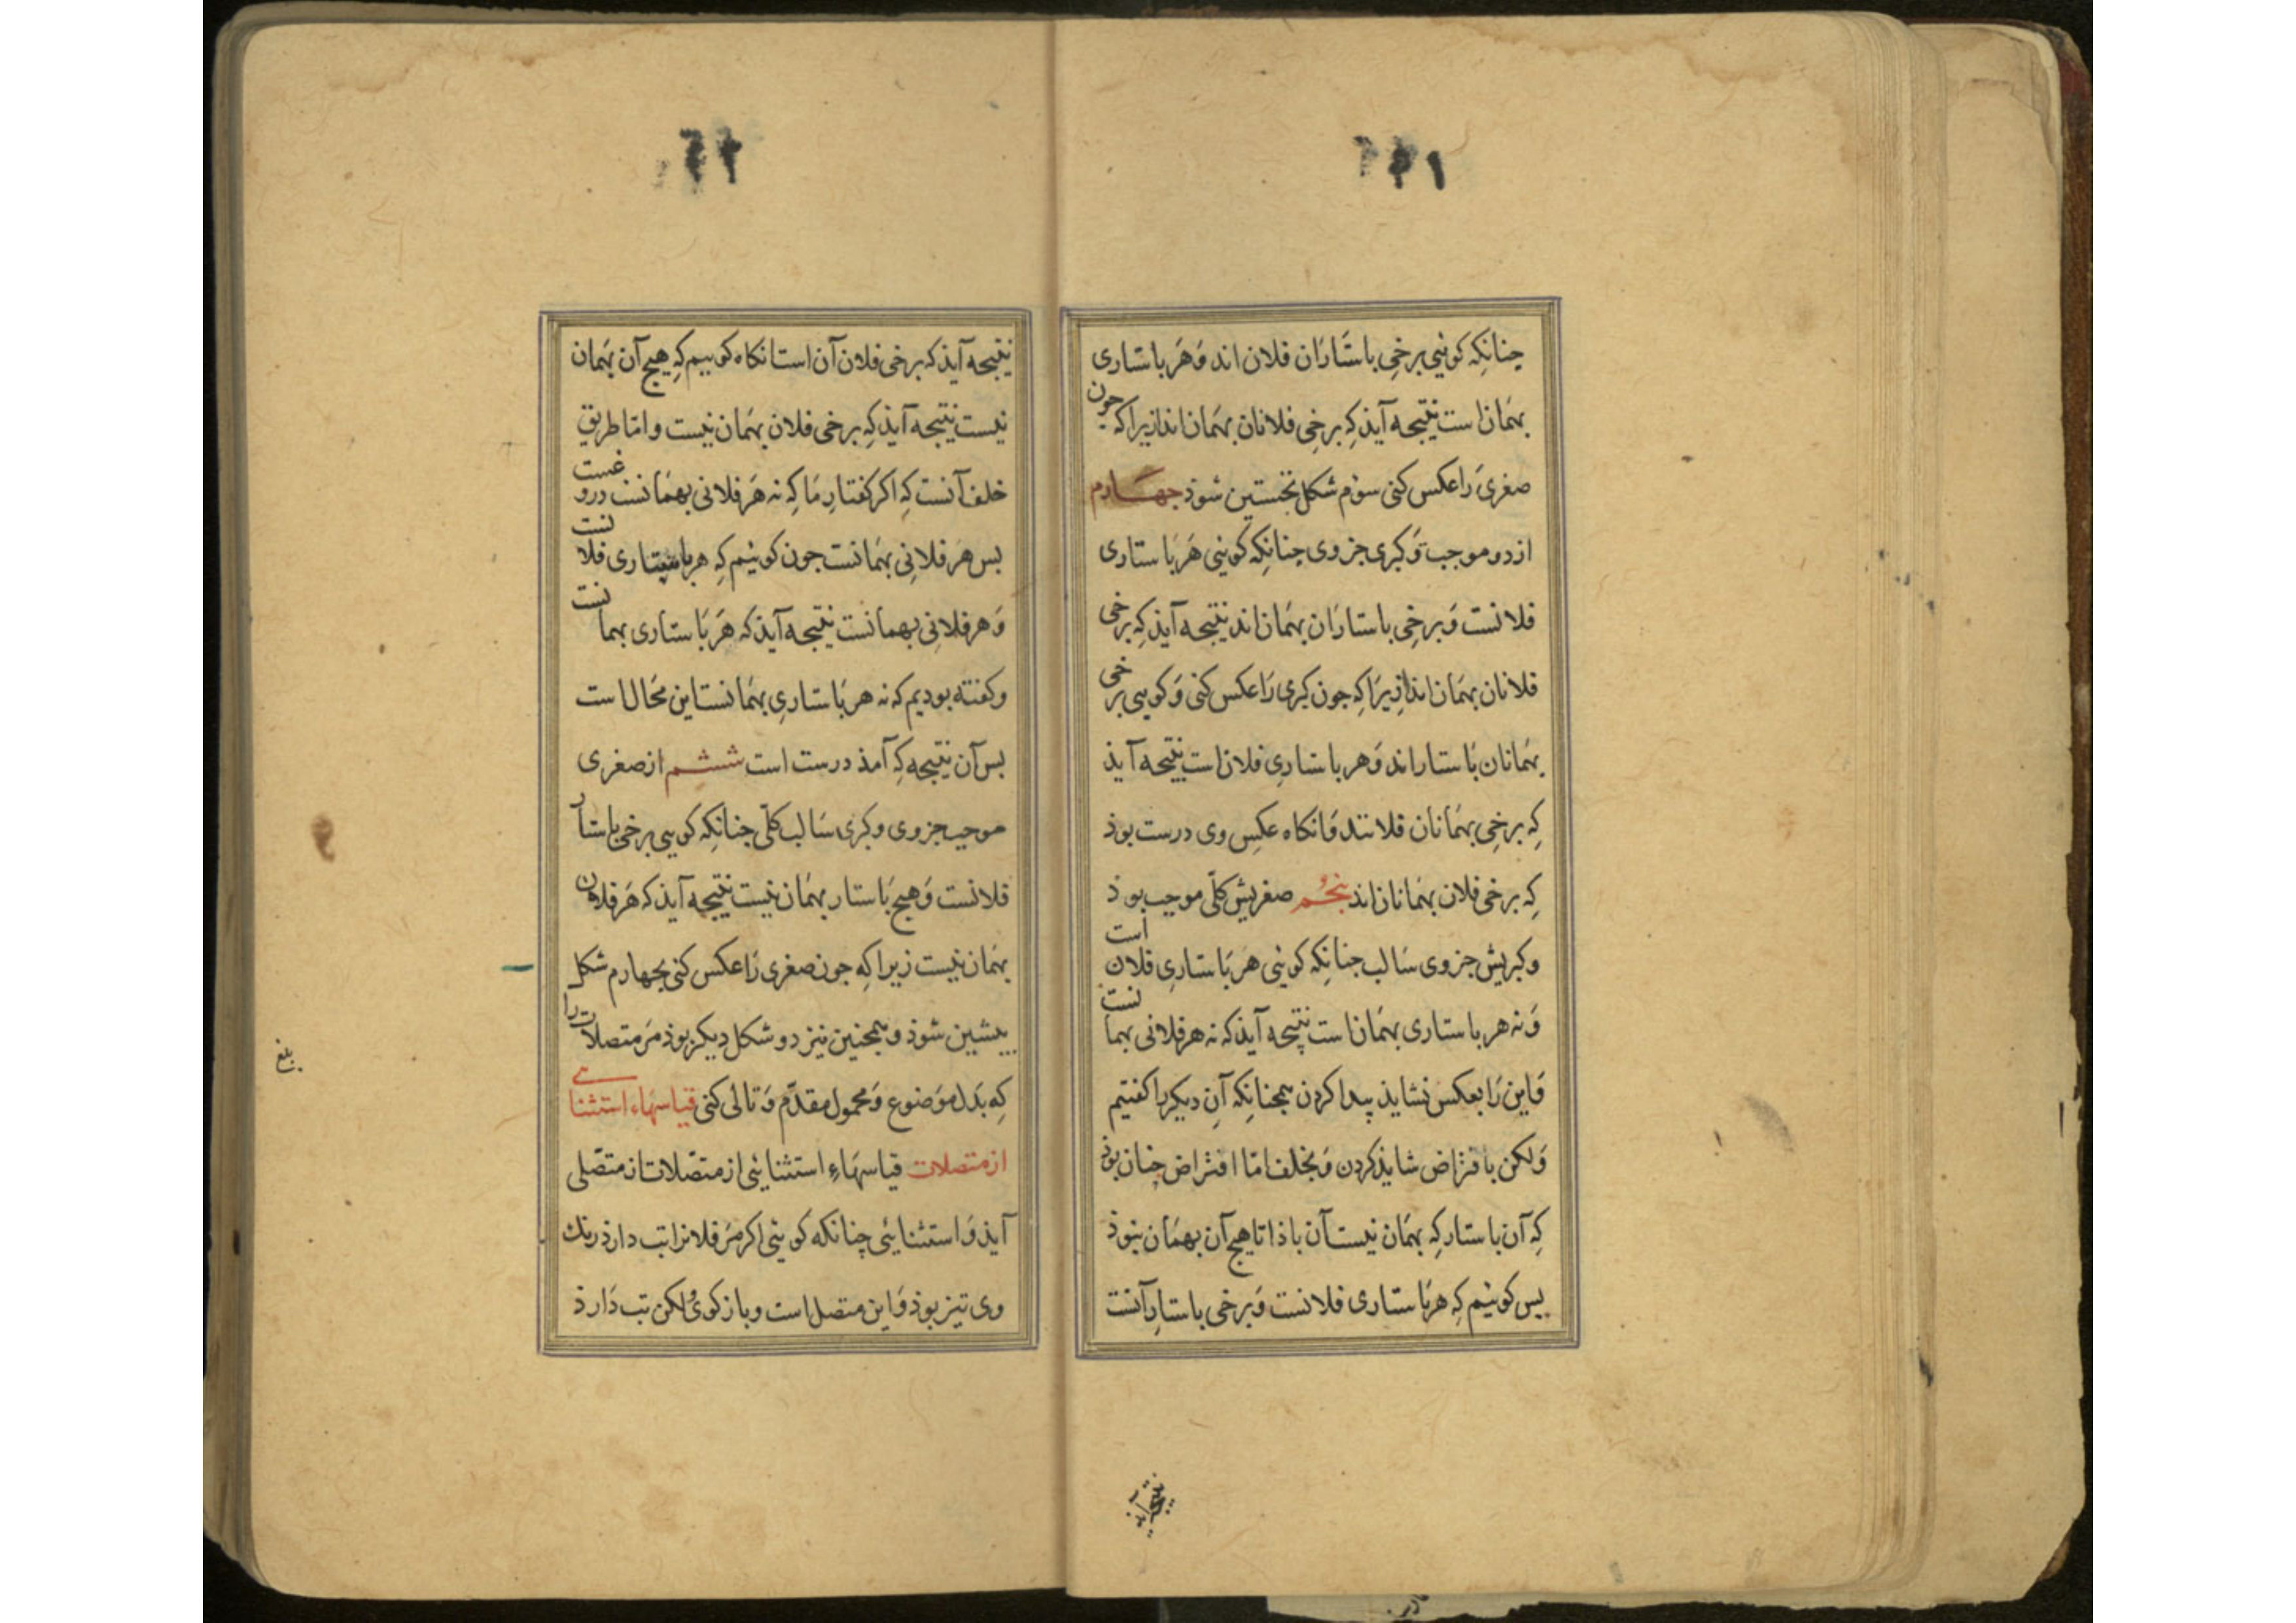 چنانکه کوئیی برخی باستاران فلان اند و هر باستاری
بهمان است نتیجه آیذ که برخی فلانان بهمان اند ازیرا که چون
صغری را عکس کنی سوم شکل نخستین شوذ چهارم
از دو موجب و کبری جزوی چنانکه کوئیی هر باستاری
فلانست و برخی باستاران بهمان اند نتیجه آیذ که برخی
فلانان بهمان اند ازیرا که جون کبری را عکس کنی و کویی برخی
بهمانان باستار اند و هر باستاری فلان است نتیجه آیذ
که برخی بهمانان فلانند و انکاه عکس وی درست بوذ
که برخی فلان بهمانان اند پنجم صغریش کلّی موجب بوذ
و کبریش جزوی سالب جنانکه کوئیی هر باستاری فلان است
و نه هر باستاری بهمان است نتیجه آیذ که نه هر فلانی بهمانست
و این را بعکس نشایذ پیدا کردن همچنانکه آن دیکر را کفتیم
ولکن بافتراض شایذ کردن و بخلف امّا افتراض چنان بوذ
که آن باستار که بهمان نیست آن باذا تا هیچ آن بهمان نبوذ
پس کوئیم که هر باستاری فلانست و برخی باستار آنست
نتیجه آیذ
نتیجه آیذ که برخی فلان آن است انکاه کوییم که هیچ آن بهمان
نیست نتیجه آیذ که برخی فلان بهمان نیست و امّا طریق
خلف آنست که اکر کفتار ما که نه هر فلانی بهمانست دروغست
بس هر فلانی بهمانست جون کوئیم که هر باستاری فلانست
و هر فلانی بهمانست نتیجه آیذ که هر باستاری بهمانست
و کفته بودیم که نه هر باستاری بهمانست این محال است
بس آن نتیجه که آمذ درست است ششم از صغری
موجب جزوی و کبری سالب کلّی جنانکه کویی برخی باستار
فلانست و هیچ باستار بهمان نیست نتیجه آیذ که هر فلان
بهمان نیست زیرا که جون صغری را عکس کنی بجهارم شکل
پیشین شوذ و همچنین نیز دو شکل دیکر بوذ مر متصلات را
که بدل موضوع و محمول مقدّم و تالی کنی قیاسهاء استثنایی
از متصلات قیاسهاء استثنایی از متصّلات از متصّلی
آیذ و استثنائیی چنانکه کوئیی اکر مر فلانرا تب دارذ رنک
وی تیز بوذ و این متصل است و باز کوی ولکن تب دارذ
بلغ